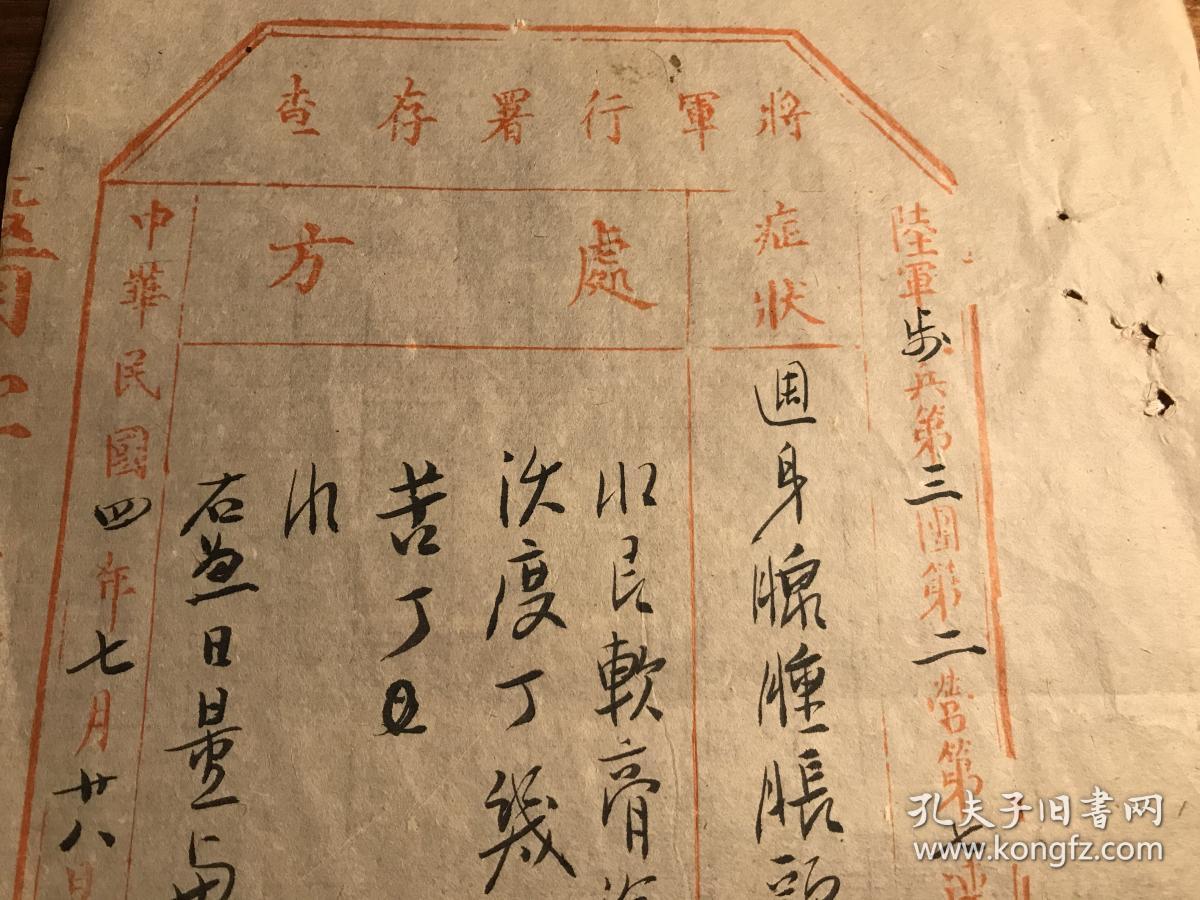 將軍行署存查
陸軍步兵第三團第二營第七連
症狀
週身腺腫脹頭
處方
水艮軟膏
沃度丁幾
苦丁
水
右為一日量与
中華民國四年七月廿八日
孔夫子旧书网
www.kongfz.com